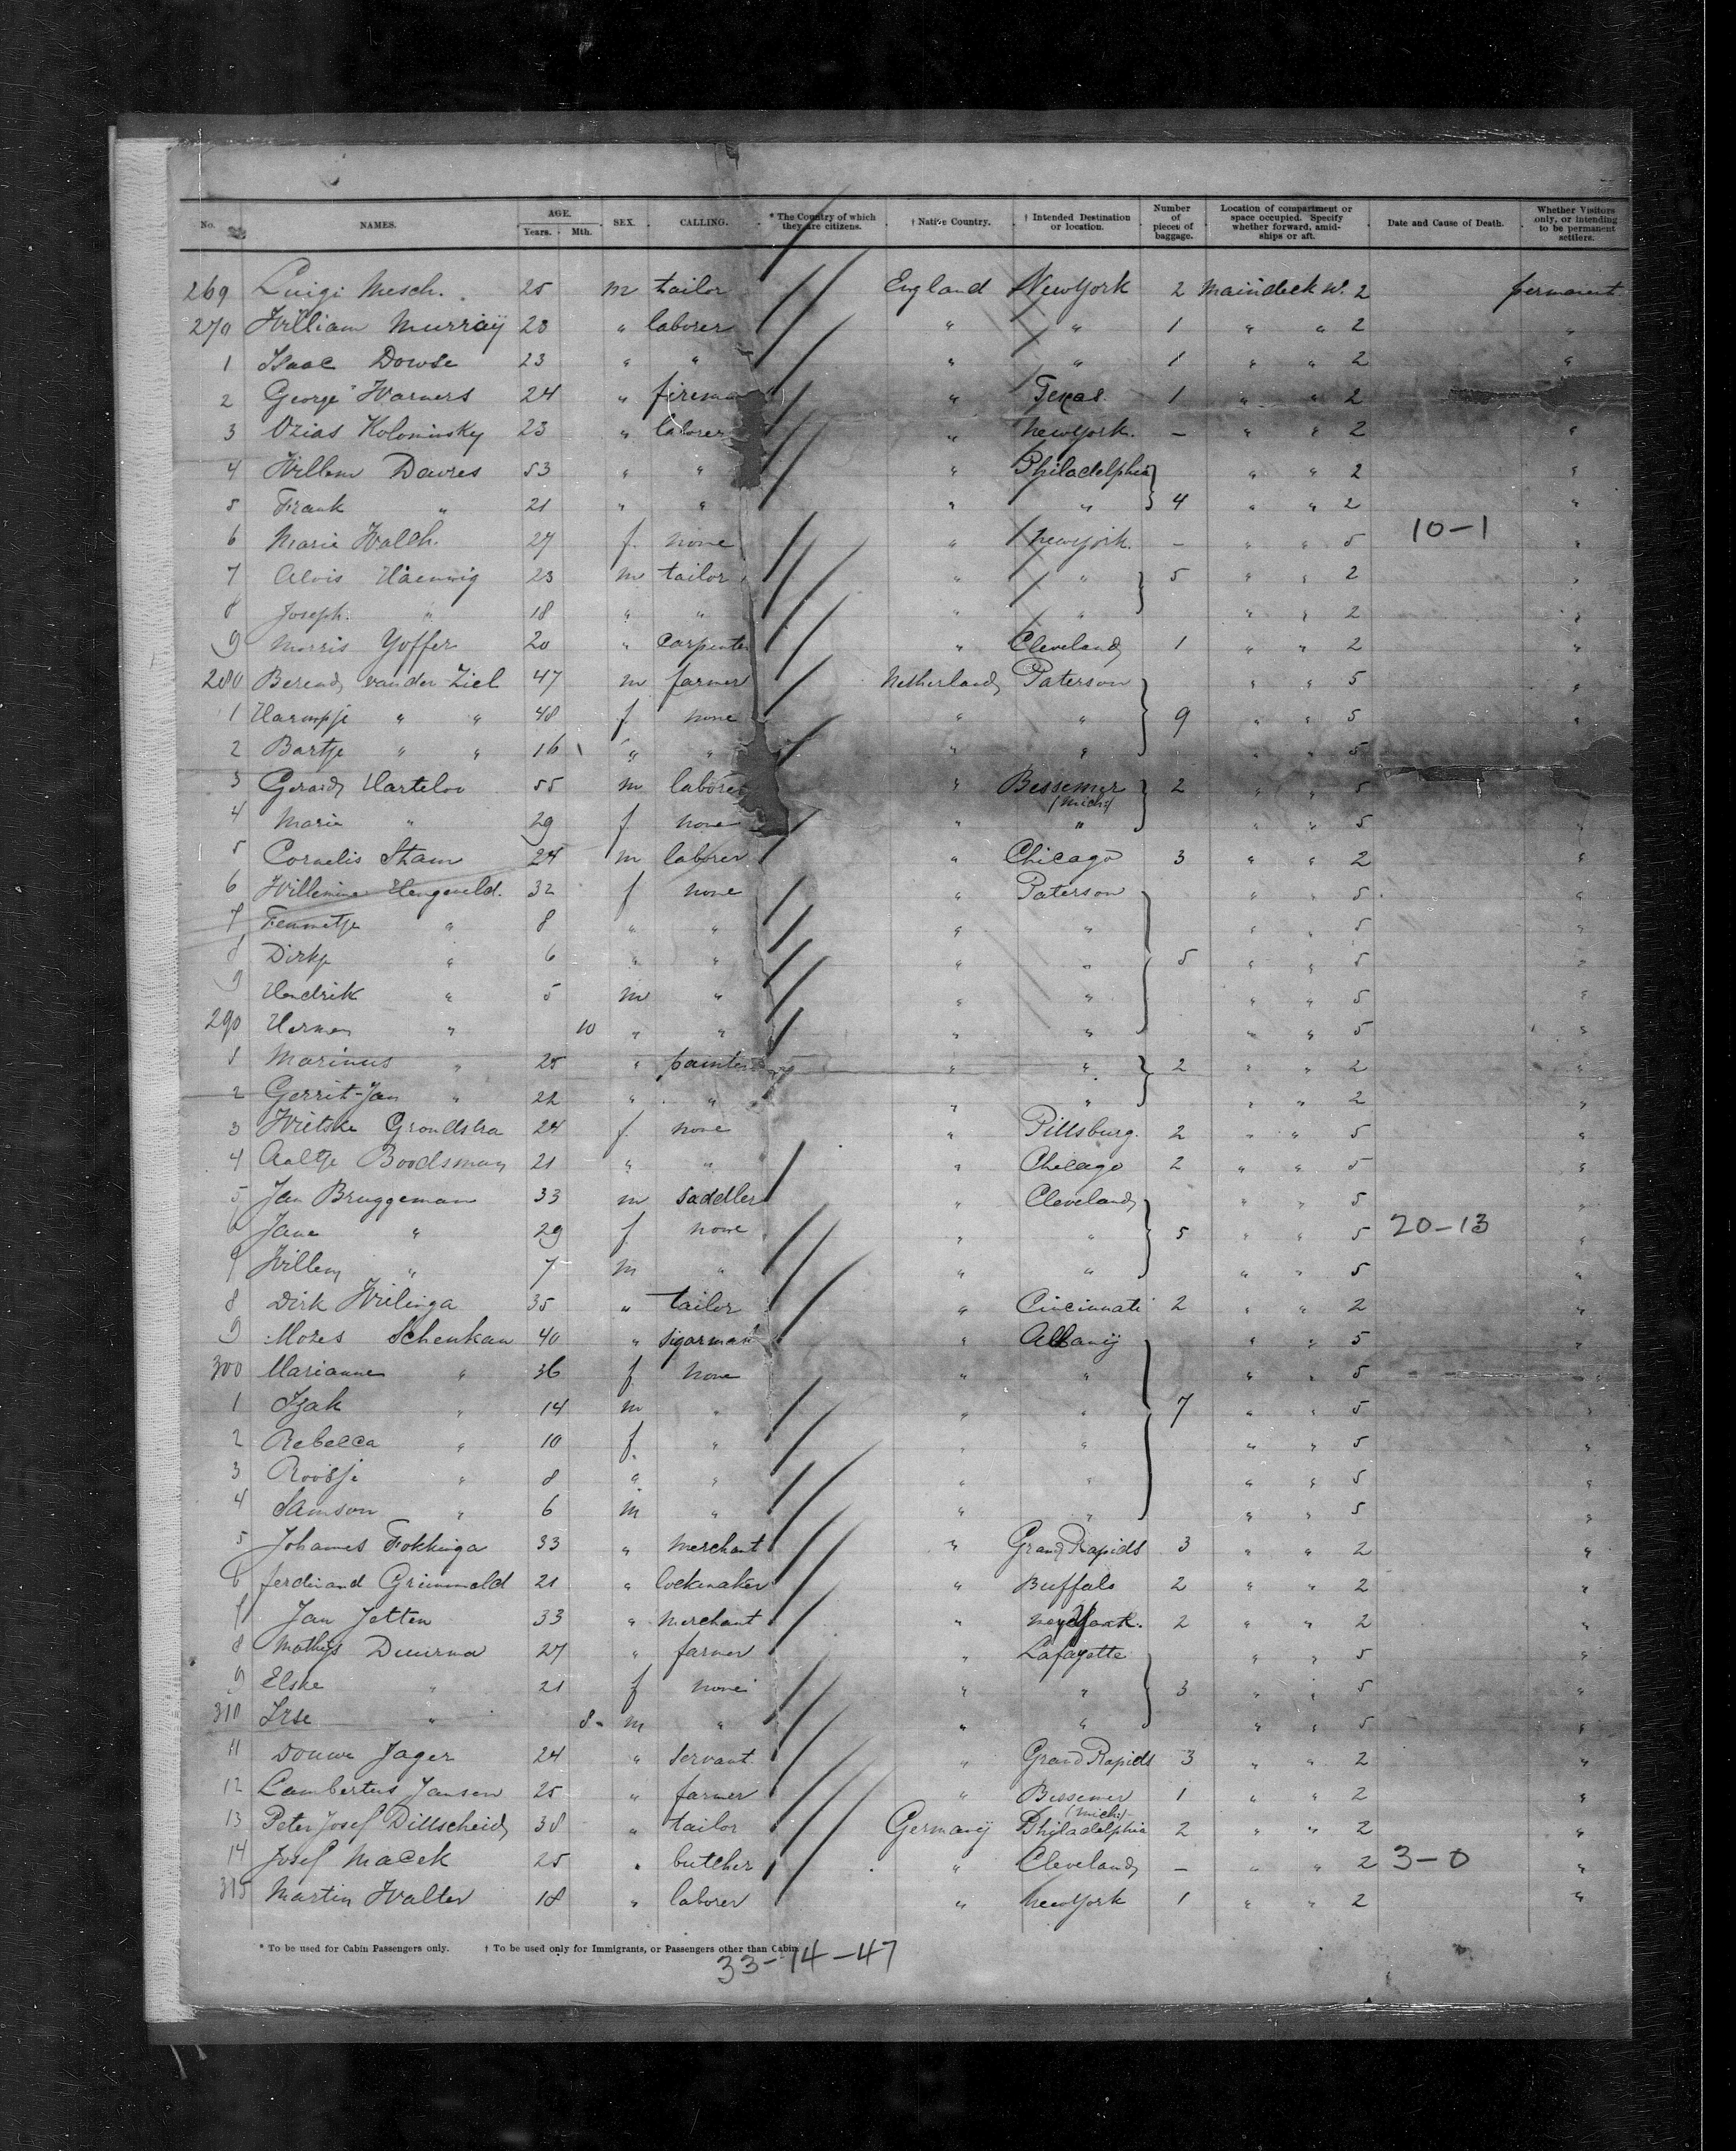 No. NAMES. AGE. Years. Mth. SEX. CALLING. * The Country of which they are citizens. † Native Country. † Intended Destination or location. Number of pieces of baggage. Location of compartment or space occupied. Specify whether forward, amidships or aft. Date and Cause of Death. Whether Visitors only, or intending to be permanent settlers.
269 Luigi Mesch. 25 m tailor England New York 2 Maindeck W. 2 permanent
270 William Murraÿ 20 " laborer " " 1 " " 2 "
1 Isaac Dowse 23 " " " " 1 " " 2 "
2 George Warners 24 " firema " Texas. 1 " " 2
3 Ozias Kolominsky 23 " laborer " New York. — " " 2 "
4 Willem Davies 53 " " " Philadelphia " " 2 "
5 Frank " 21 " " " " 4 " " 2 "
6 Marie Walch. 27 f. none " New York. — " " 5 10-1 "
7 Alois Haenwig 23 m tailor " " 5 " " 2 "
8 Joseph. " 18 " " " " " " 2 "
9 Morris Yoffer 20 " carpenter " Cleveland 1 " " 2 "
280 Berend van der Ziel 47 m farmer Netherland Paterson " " 5 "
1 Harmpje " " 48 f none " " 9 " " 5 "
2 Bartje " " 16 " " " " " " 5
3 Gerard Hartelov 55 m laborer " Bessemer (Mich) 2 " " 5
4 Marie " 29 f none " " " " 5 "
5 Cornelis Stam 24 m laborer " Chicago 3 " " 2 "
6 Willemina Hengeveld. 32 f none " Paterson " " 5 "
7 Fennetje " 8 " " " " " " 5 "
8 Dirkje " 6 " " " " 5 " " 5 "
9 Hendrik " 5 m " " " " " 5 "
290 Herman " 10 " " " " " " 5 "
1 Marinus " 25 " painter " " 2 " " 2 "
2 Gerrit-Jan " 22 " " " " " " 2 "
3 Wietske Grondstra 24 f. none " Pittsburg. 2 " " 5 "
4 Aaltje Boodsman 21 " " " Chicago 2 " " 5 "
5 Jan Bruggeman 33 m saddler " Cleveland " " 5 "
6 Jane " 29 f none " " 5 " " 5 20-13 "
7 Willem " 7 m " " " " " 5 "
8 Dirk Wielinga 35 " tailor " Cincinnati 2 " " 2 "
9 Mozes Schenkan 40 " sigarmak " Albanÿ " " 5 "
300 Marianne " 36 f none " " " " 5 "
1 Izak " 14 m " " " 7 " " 5 "
2 Rebecca " 10 f. " " " " " 5 "
3 Roosje " 8 " " " " " " 5 "
4 Samson " 6 m " " " " " 5 "
5 Johannes Fokkinga 33 " merchant " Grand Rapids 3 " " 2 "
6 ferdinand Grimmald 21 " lockmaker " Buffalo 2 " " 2 "
7 Jan Jetten 33 " merchant " New York. 2 " " 2 "
8 Mathys Duurma 27 " farmer " Lafayette " " 5 "
9 Elske " 21 f none " " 3 " " 5 "
310 Irse " 8 m " " " " " 5 "
11 Douwe Jager 24 " servant. " Grand Rapids 3 " " 2 "
12 Lambertus Jansen 25 " farmer " Bessemer (Mich) 1 " " 2 "
13 Peter Josef Dillscheid 38 " tailor Germanÿ Philadelphia 2 " " 2 "
14 Josef Macek 25 " butcher " Cleveland — " " 2 3-0 "
315 Martin Walter 18 " laborer " New York 1 " " 2 "
* To be used for Cabin Passengers only. † To be used only for Immigrants, or Passengers other than Cabin
33-14-47